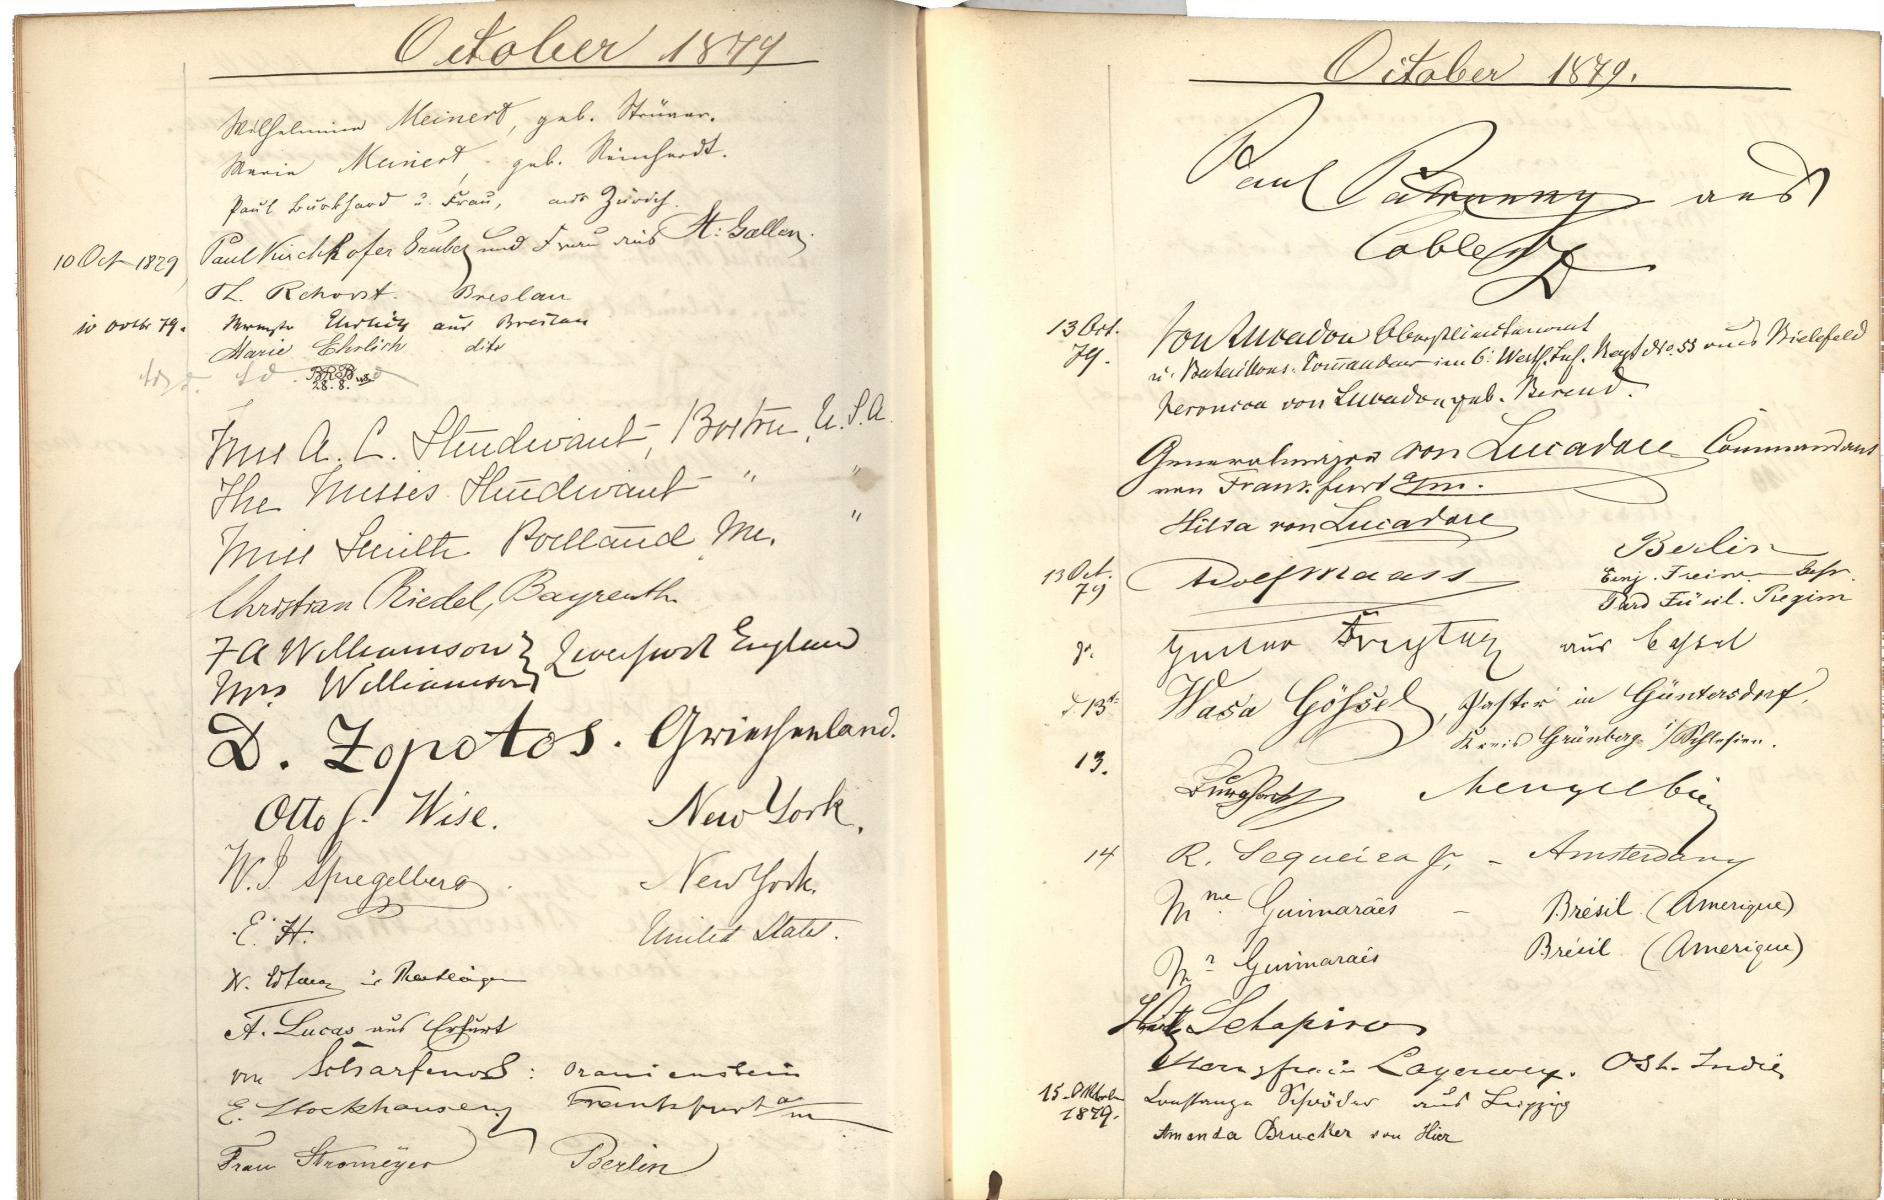 October 1879
Wilhelmine Meinert, geb. Strüver.
Marie Meinert, geb. Reinhardt.
Paul Burkhard u. Frau, aus Zürich.
10 Oct 1879 Paul Kirchhofer Gruber und Frau aus St: Gallen.
Th. Rehorst. Breslau
10 Octbr 79. Ehrlich aus Breslau
Marie Ehrlich dito
28.8.
Mrs A. C. Studivant, Boston, U.S.A.
The Misses Studivant " "
Miss Smith Portland Me. "
Christian Riedel, Bayreuth
F A Williamson } Liverpool England
Mrs Williamson }
D. Zopotos. Griechenland.
Otto J. Wise. New York.
W. J. Spiegelberg. New York.
E. H. United States.
A. Lucas aus Erfurt
von Scharfenort: Oranienstein
E. Stockhausen Frankfurt a/m
Frau Stromeyer Berlin
October 1879.
Paul aus
Coblenz
13 Oct. 79. von Lucadou Oberstlieutenant
u. Bataillons. Commandeur im 6. Westf. Inf. Regt No. 55 aus Bielefeld
Veronica von Lucadou geb. Berend.
Generalmajor von Lucadou Commandant
von Frankfurt a/m.
Hilda von Lucadou
13 Oct. 79 Adolf Maass Berlin
Einj. Freiw. Gefr.
Gard Füsil. Regim
Gustav Freytag aus Cassel
d. 13t. Wasa Gößel, Pastor in Güntersdorf,
Kreis Grünberg i/Schlesien.
13. Mengelbier
14 R. Sequeira Jr. - Amsterdam
Mme Guimarães - Brésil (Amerique)
Mr Guimarães Brésil (Amerique)
Schapiro
Ost. Indie
15. Oktober 1879. Constanze Schröder aus Leipzig
Amanda Brucker von Hier